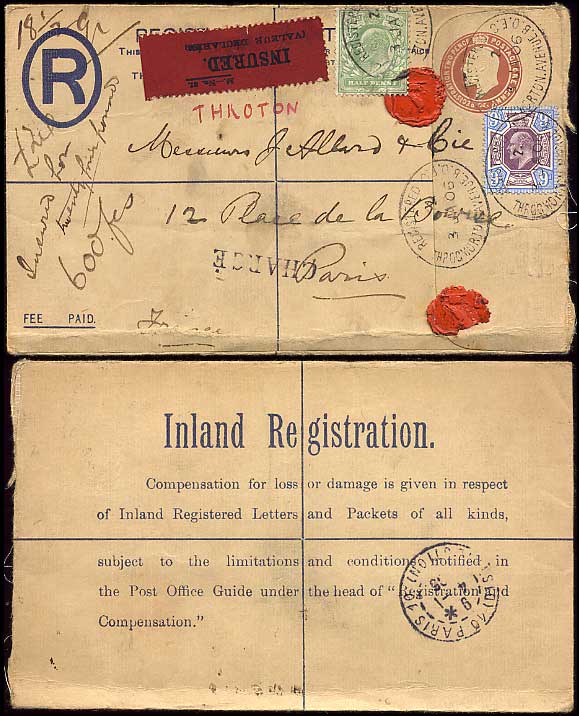 18½ gr
R
INSURED.
(VALEUR DECLARÉE)
HALF PENNY
THROTON
Insured for
twenty four pounds
600 fcs
Messieurs J Allard & Cie
12 Place de la Bourse
CHARGÉ
Paris
France
FEE PAID.
REGISTERED
THROGMORTON AVENUE B.O.E.C.
3 JY 06
9d 9d
Inland Registration.
Compensation for loss or damage is given in respect
of Inland Registered Letters and Packets of all kinds,
subject to the limitations and conditions notified in
the Post Office Guide under the head of "Registration and
Compensation."
PARIS